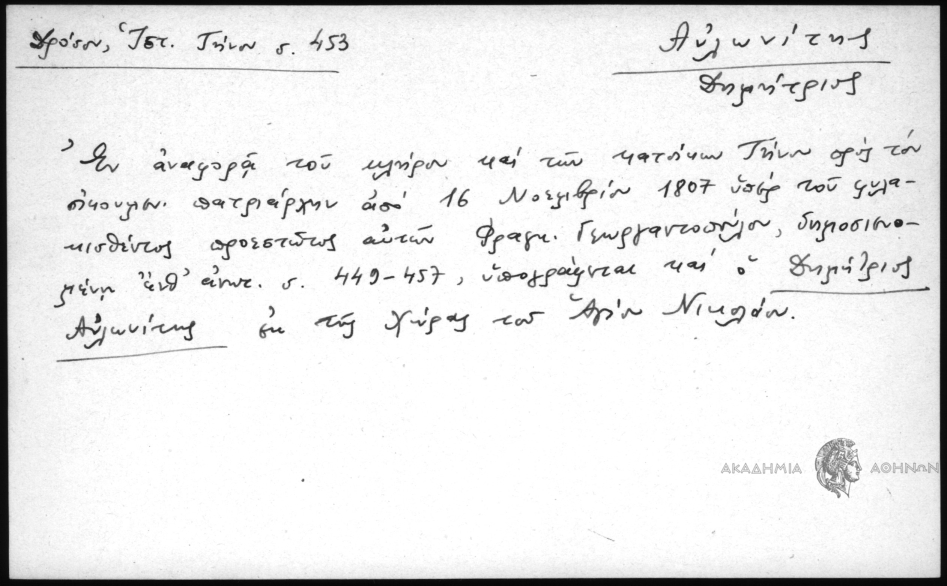 Δρόσου, Ἱστ. Τήνου σ. 453
Αὐλωνίτης
Δημήτριος
Ἐν ἀναφορᾷ τοῦ κλήρου καὶ τῶν κατοίκων Τήνου πρὸς τὸν
οἰκουμεν. πατριάρχην ἀπό 16 Νοεμβρίου 1807 ὑπὲρ τοῦ φυλα-
κισθέντος προεστῶτος αὐτῶν Φραγκ. Γεωργαντοπούλου, δημοσιευο-
μένῃ ἔνθ' ἀνωτ. σ. 449-457, ὑπογράφεται καὶ ὁ Δημήτριος
Αὐλωνίτης ἐκ τῆς Χώρας τοῦ Ἁγίου Νικολάου.
ΑΚΑΔΗΜΙΑ ΑΘΗΝΩΝ